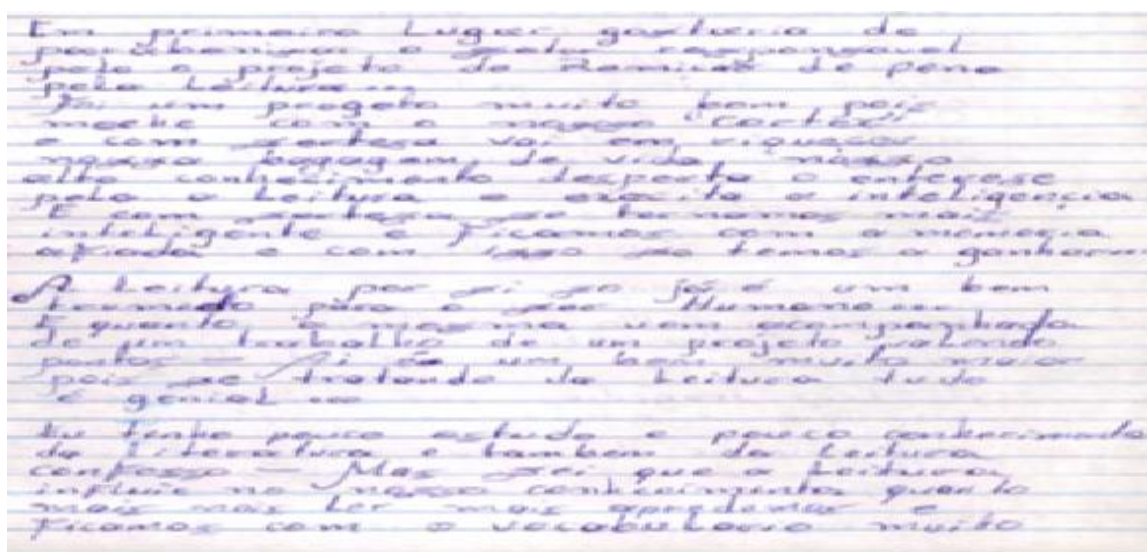 Em primeiro Lugar gostaria de
parabenizar o setor responsável
pelo o projeto da Remição de pena
pela Leitura...
Foi um progeto muito bom pois
meche com o nosso "Cortéx"
e com serteza vai em riquesar
nossa bagagem de vida nosso
alto conhecimento desperta o enterese
pela a Leitura e exécita a inteligençia
E com serteza se tornamos mais
inteligente e Ficamos com a memoria
afiada e com isso so temos a ganhar
A Leitura por si so já é um bem
para o ser Humano...
E quanto a mesma vem acompanhada
de um trabalho de um projeto valendo
pontos — Ai é um bem muito maior
pois se tratando da Leitura tudo
é genial...
Eu tenho pouco estudo e pouco conhecimento
da Literatura e tambem da Leitura
confesso — Mas sei que a Leitura
influie no nosso conhecimento quanto
mais nos Ler mais apredemos e
Ficamos com o vocabulario muito